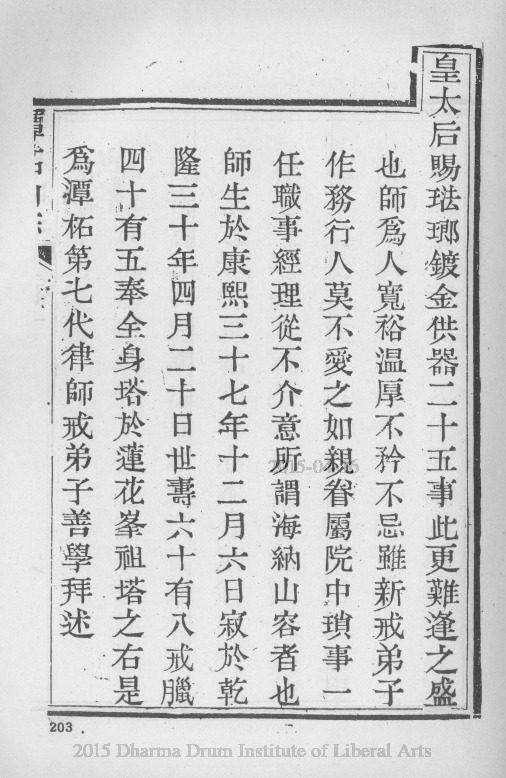 皇太后賜琺瑯鍍金供器二十五事此更難逢之盛
也師爲人寬裕温厚不矜不忌雖新戒弟子
作務行人莫不愛之如親眷屬院中瑣事一
任職事經理從不介意所謂海納山容者也
師生於康熙三十七年十二月六日寂於乾
隆三十年四月二十日世壽六十有八戒臘
四十有五奉全身塔於蓮花峯祖塔之右是
爲潭柘第七代律師戒弟子善學拜述
203
2015 Dharma Drum Institute of Liberal Arts